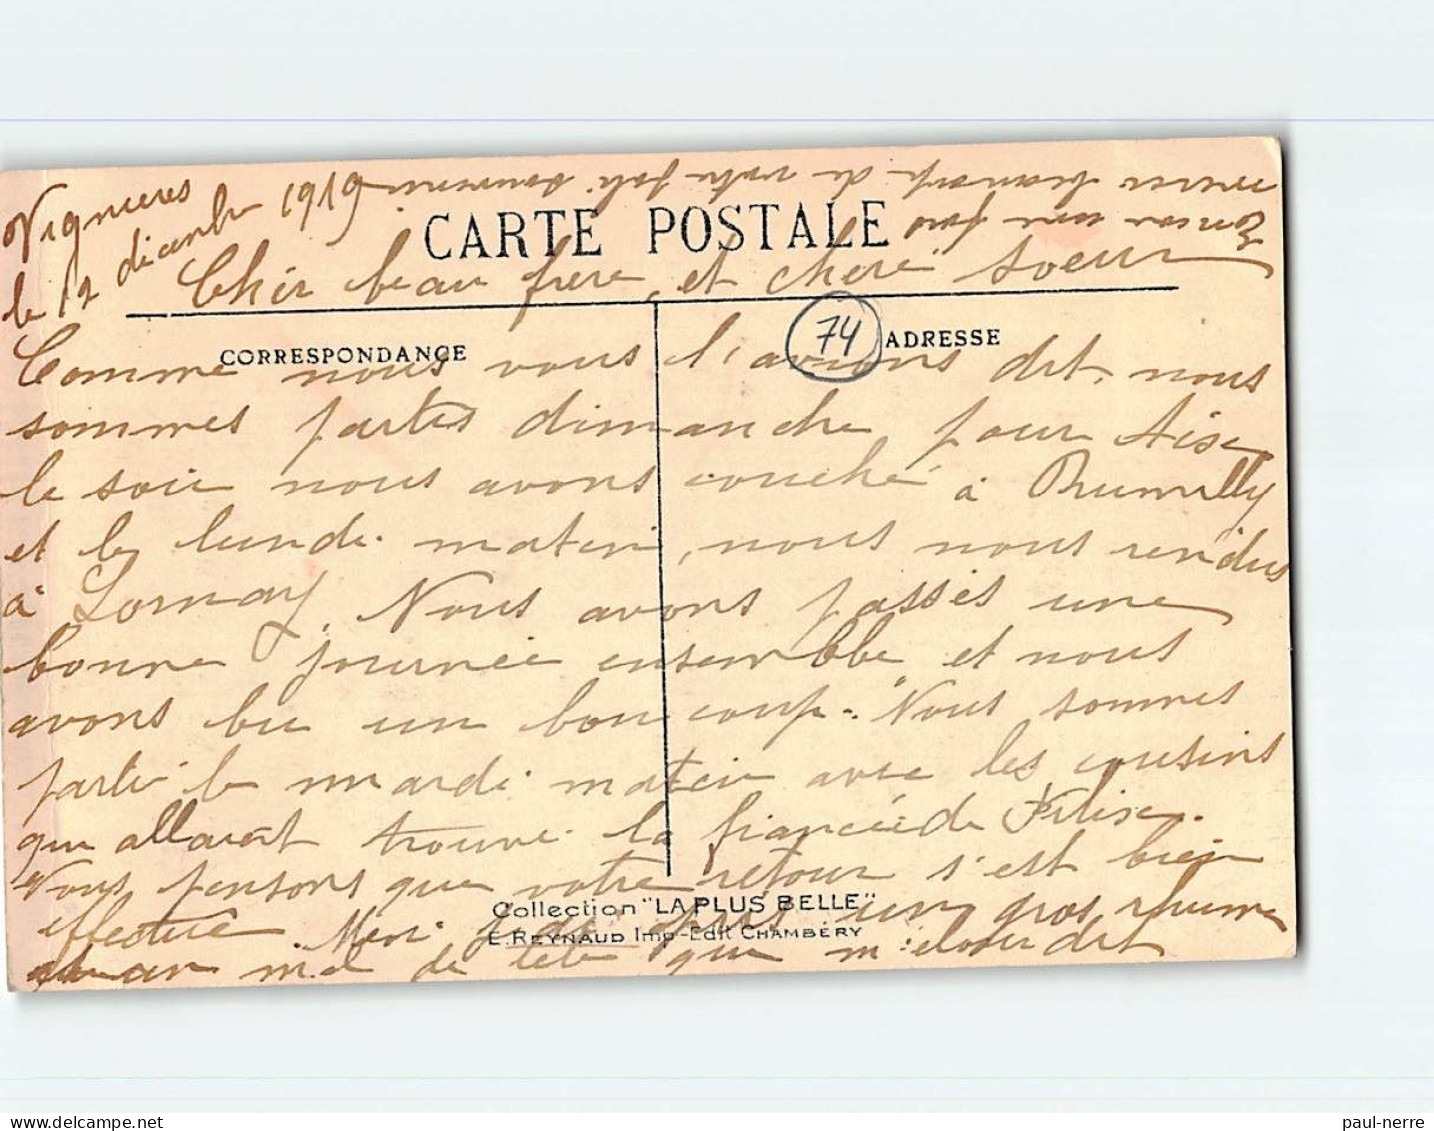 Vignieres
le 12 décembre 1919
CARTE POSTALE
Cher beau frère, et chère soeur
CORRESPONDANCE
74
ADRESSE
Comme nous vous l'avions dit, nous
sommes partis dimanche pour Aise
le soir nous avons couché à Rumilly
et le lundi matin, nous nous rendus
à Lornay. Nous avons passés une
bonne journée ensemble et nous
avons bu un bon coup. Nous sommes
parti le mardi matin avec les cousins
qui allaient trouve la fiancée de Félise.
Nous pensons que votre retour s'est bien
effectué. Moi j'ai pris un gros rhume
un mal de tête que m'étourdit
Collection "LA PLUS BELLE"
E. REYNAUD Imp-Edit CHAMBÉRY
vous fait
merci beaucoup de votre joli souvenir
paul-nerre